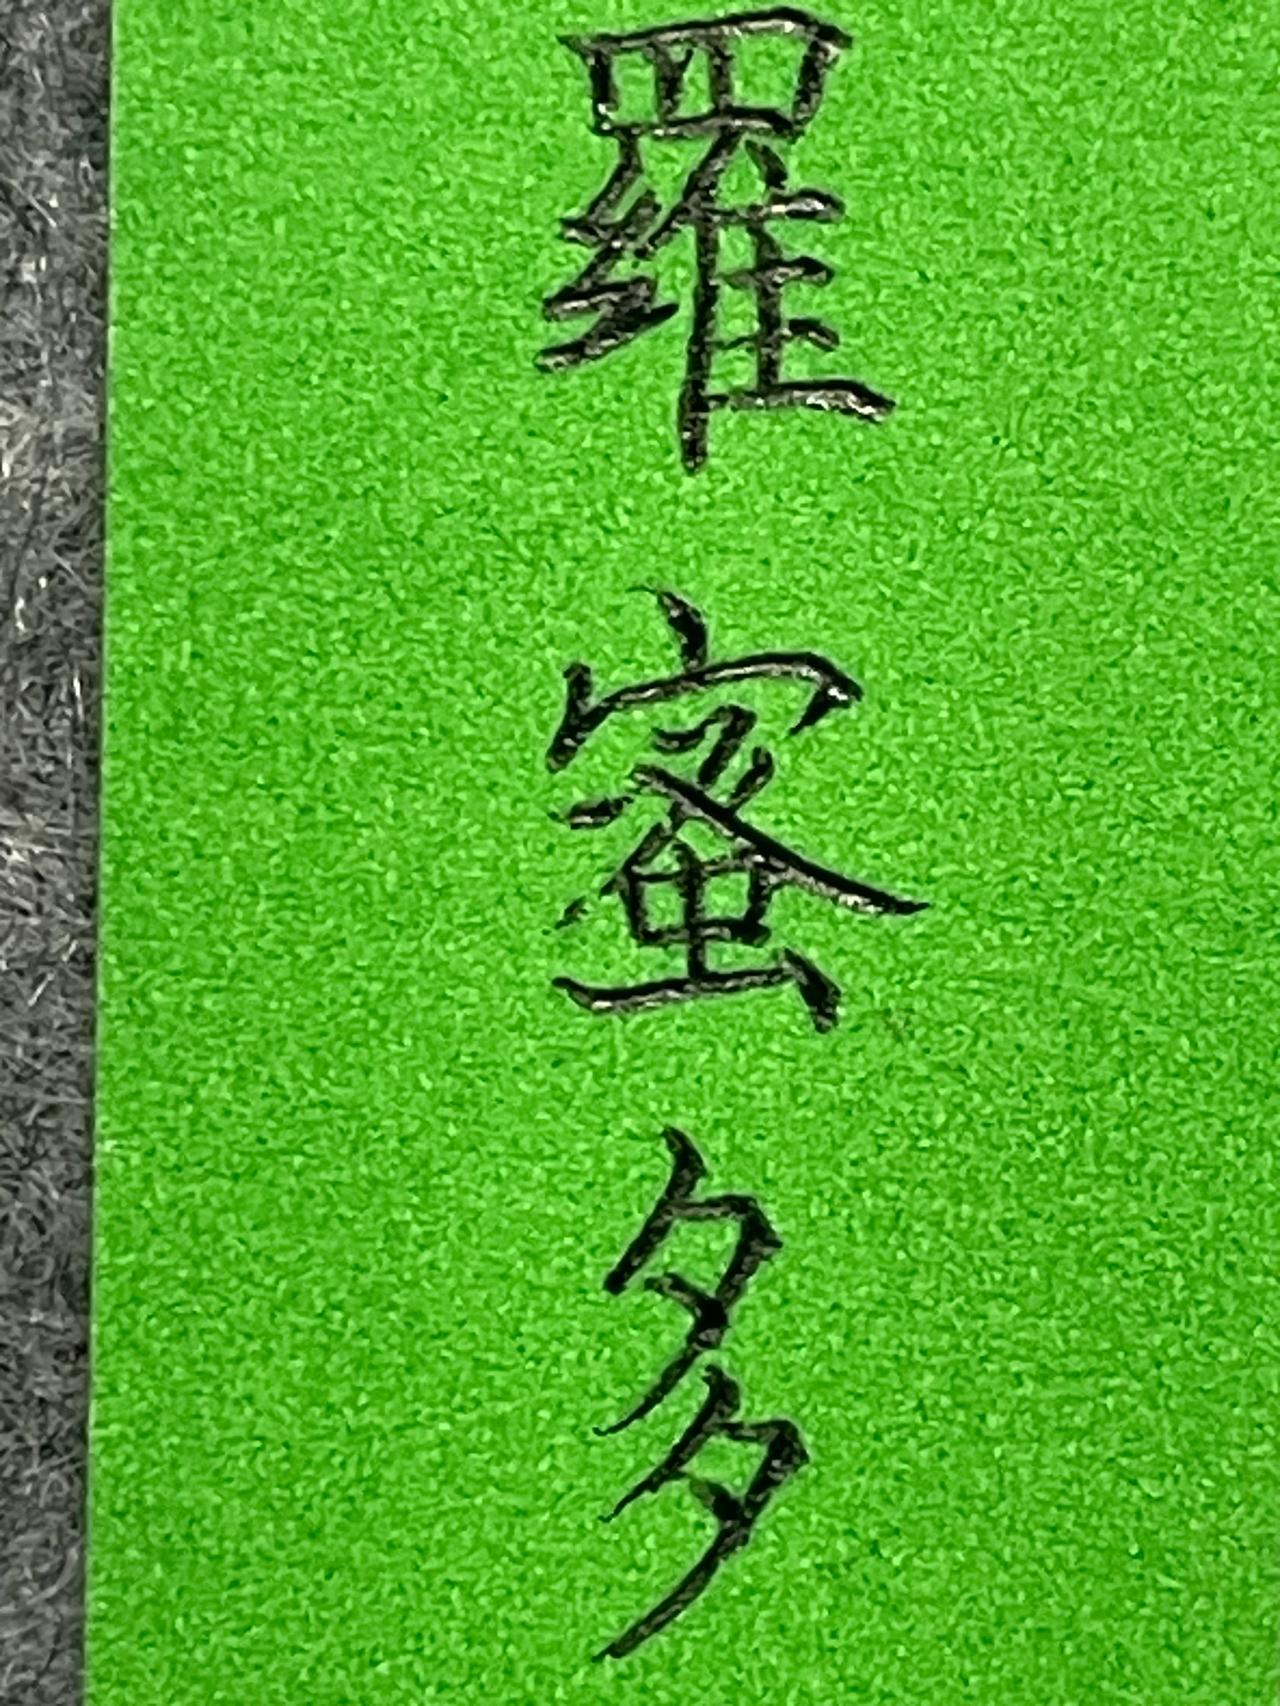 羅蜜多